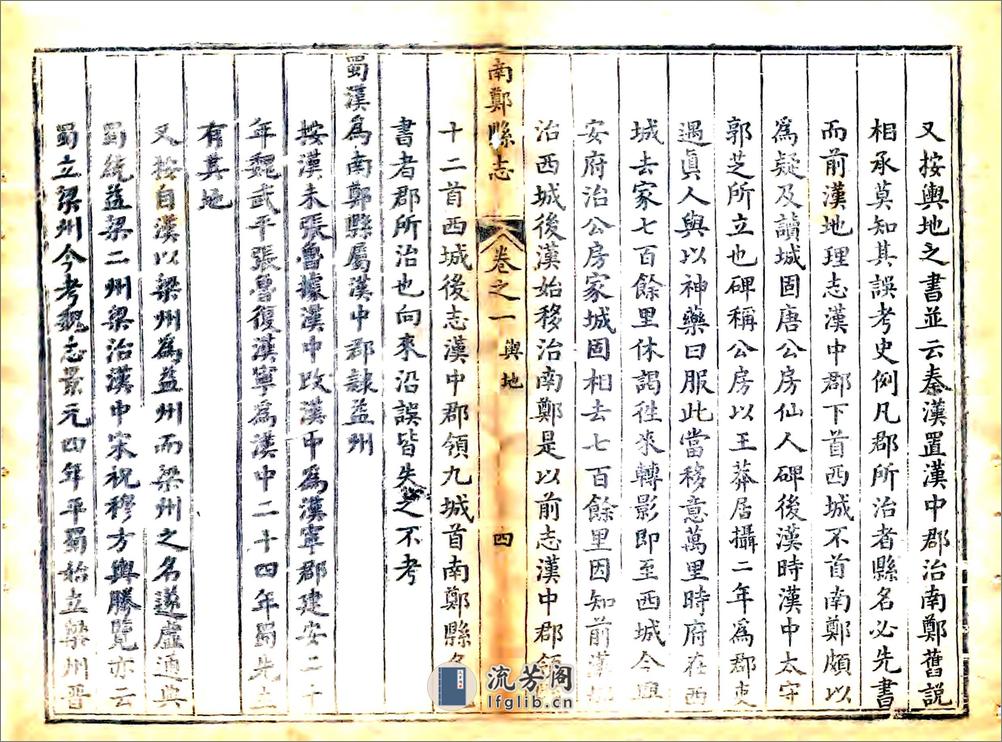 又按輿地之書並云秦漢置漢中郡治南鄭舊說
相承莫知其誤考史例凡郡所治者縣名必先書
而前漢地理志漢中郡下首西城不首南鄭頗以
為疑及讀城固唐公房仙人碑後漢時漢中太守
郭芝所立也碑稱公房以王莽居攝二年為郡吏
遇真人與以神藥曰服此當移意萬里時府在西
城去家七百餘里休謁徃來轉影即至西城今興
安府治公房家城固相去七百餘里因知前漢
治西城後漢始移治南鄭是以前志漢中郡領
南鄭縣志
卷之一
輿地
四
十二首西城後志漢中郡領九城首南鄭縣名
書者郡所治也向來沿誤皆失之不考
蜀漢為南鄭縣屬漢中郡隷益州
按漢末張魯據漢中改漢中為漢寧郡建安二十
年魏武平張魯復漢寧為漢中二十四年蜀先主
有其地
又按自漢以梁州為益州而梁州之名遂虛通典
蜀統益梁二州梁治漢中宋祝穆方輿勝覽亦云
蜀立梁州今考魏志景元四年平蜀始立梁州晋
流芳阁
lfglib.cn